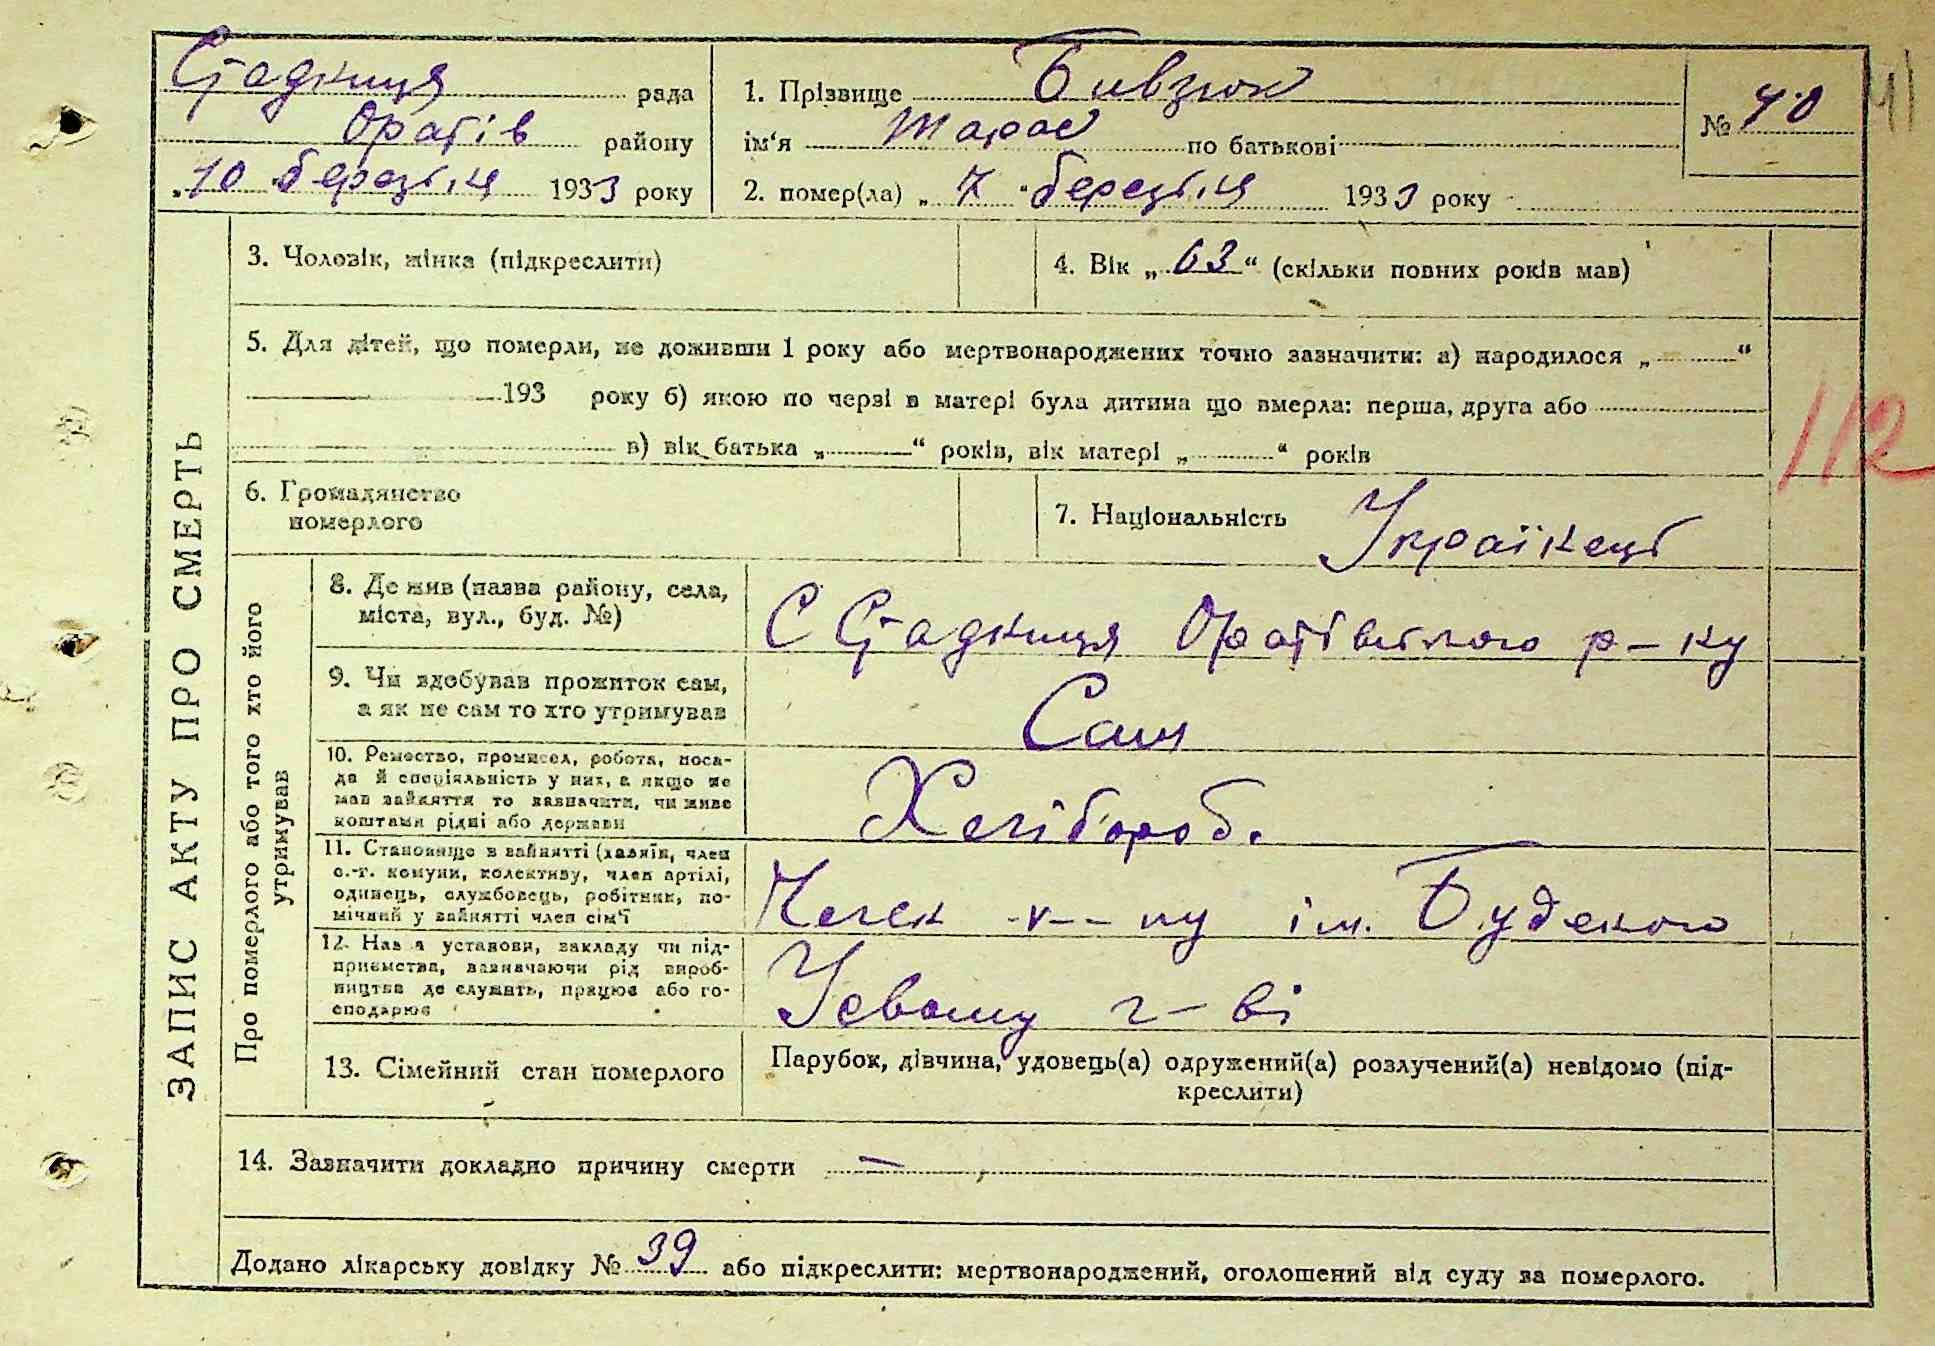 Стадниця рада
Оратів району
„10 березіля 1933 року
1. Прізвище Бивзюк
ім'я Тарас по батькові
2. помер(ла) „ 7 " березіля 1933 року
№ 40
41
3. Чоловік, жінка (підкреслити)
4. Вік „ 63 " (скільки повних років мав)
5. Для дітей, що померли, не доживши 1 року або мертвонароджених точно зазначити: а) народилося „ "
193 року б) якою по черзі в матері була дитина що вмерла: перша, друга або
в) вік батька „ " років, вік матері „ " років
112
6. Громадянство
померлого
7. Національність Українець
ЗАПИС АКТУ ПРО СМЕРТЬ
Про померлого або того хто його
утримував
8. Де жив (назва району, села,
міста, вул., буд. №)
С Стадниця Оратівського р-ну
9. Чи здобував прожиток сам,
а як не сам то хто утримував
Сам
10. Ремество, промисел, робота, поса-
да й спеціяльність у них, а якщо не
мав зайняття то зазначити, чи живе
коштами рідні або держави
Хлібороб.
11. Становище в зайнятті (хазяїн, член
с.-г. комуни, колективу, член артілі,
одинець, службовець, робітник, по-
мічний у зайнятті член сім'ї
Член к-пу ім. Будьоного
12. Назва установи, закладу чи під-
приємства, зазначаючи рід вироб-
ництва де служить, працює або го-
сподарює
Усвому г-ві
13. Сімейний стан померлого
Парубок, дівчина, удовець(а) одружений(а) розлучений(а) невідомо (під-
креслити)
14. Зазначити докладно причину смерти —
Додано лікарську довідку № 39 або підкреслити: мертвонароджений, оголошений від суду за померлого.